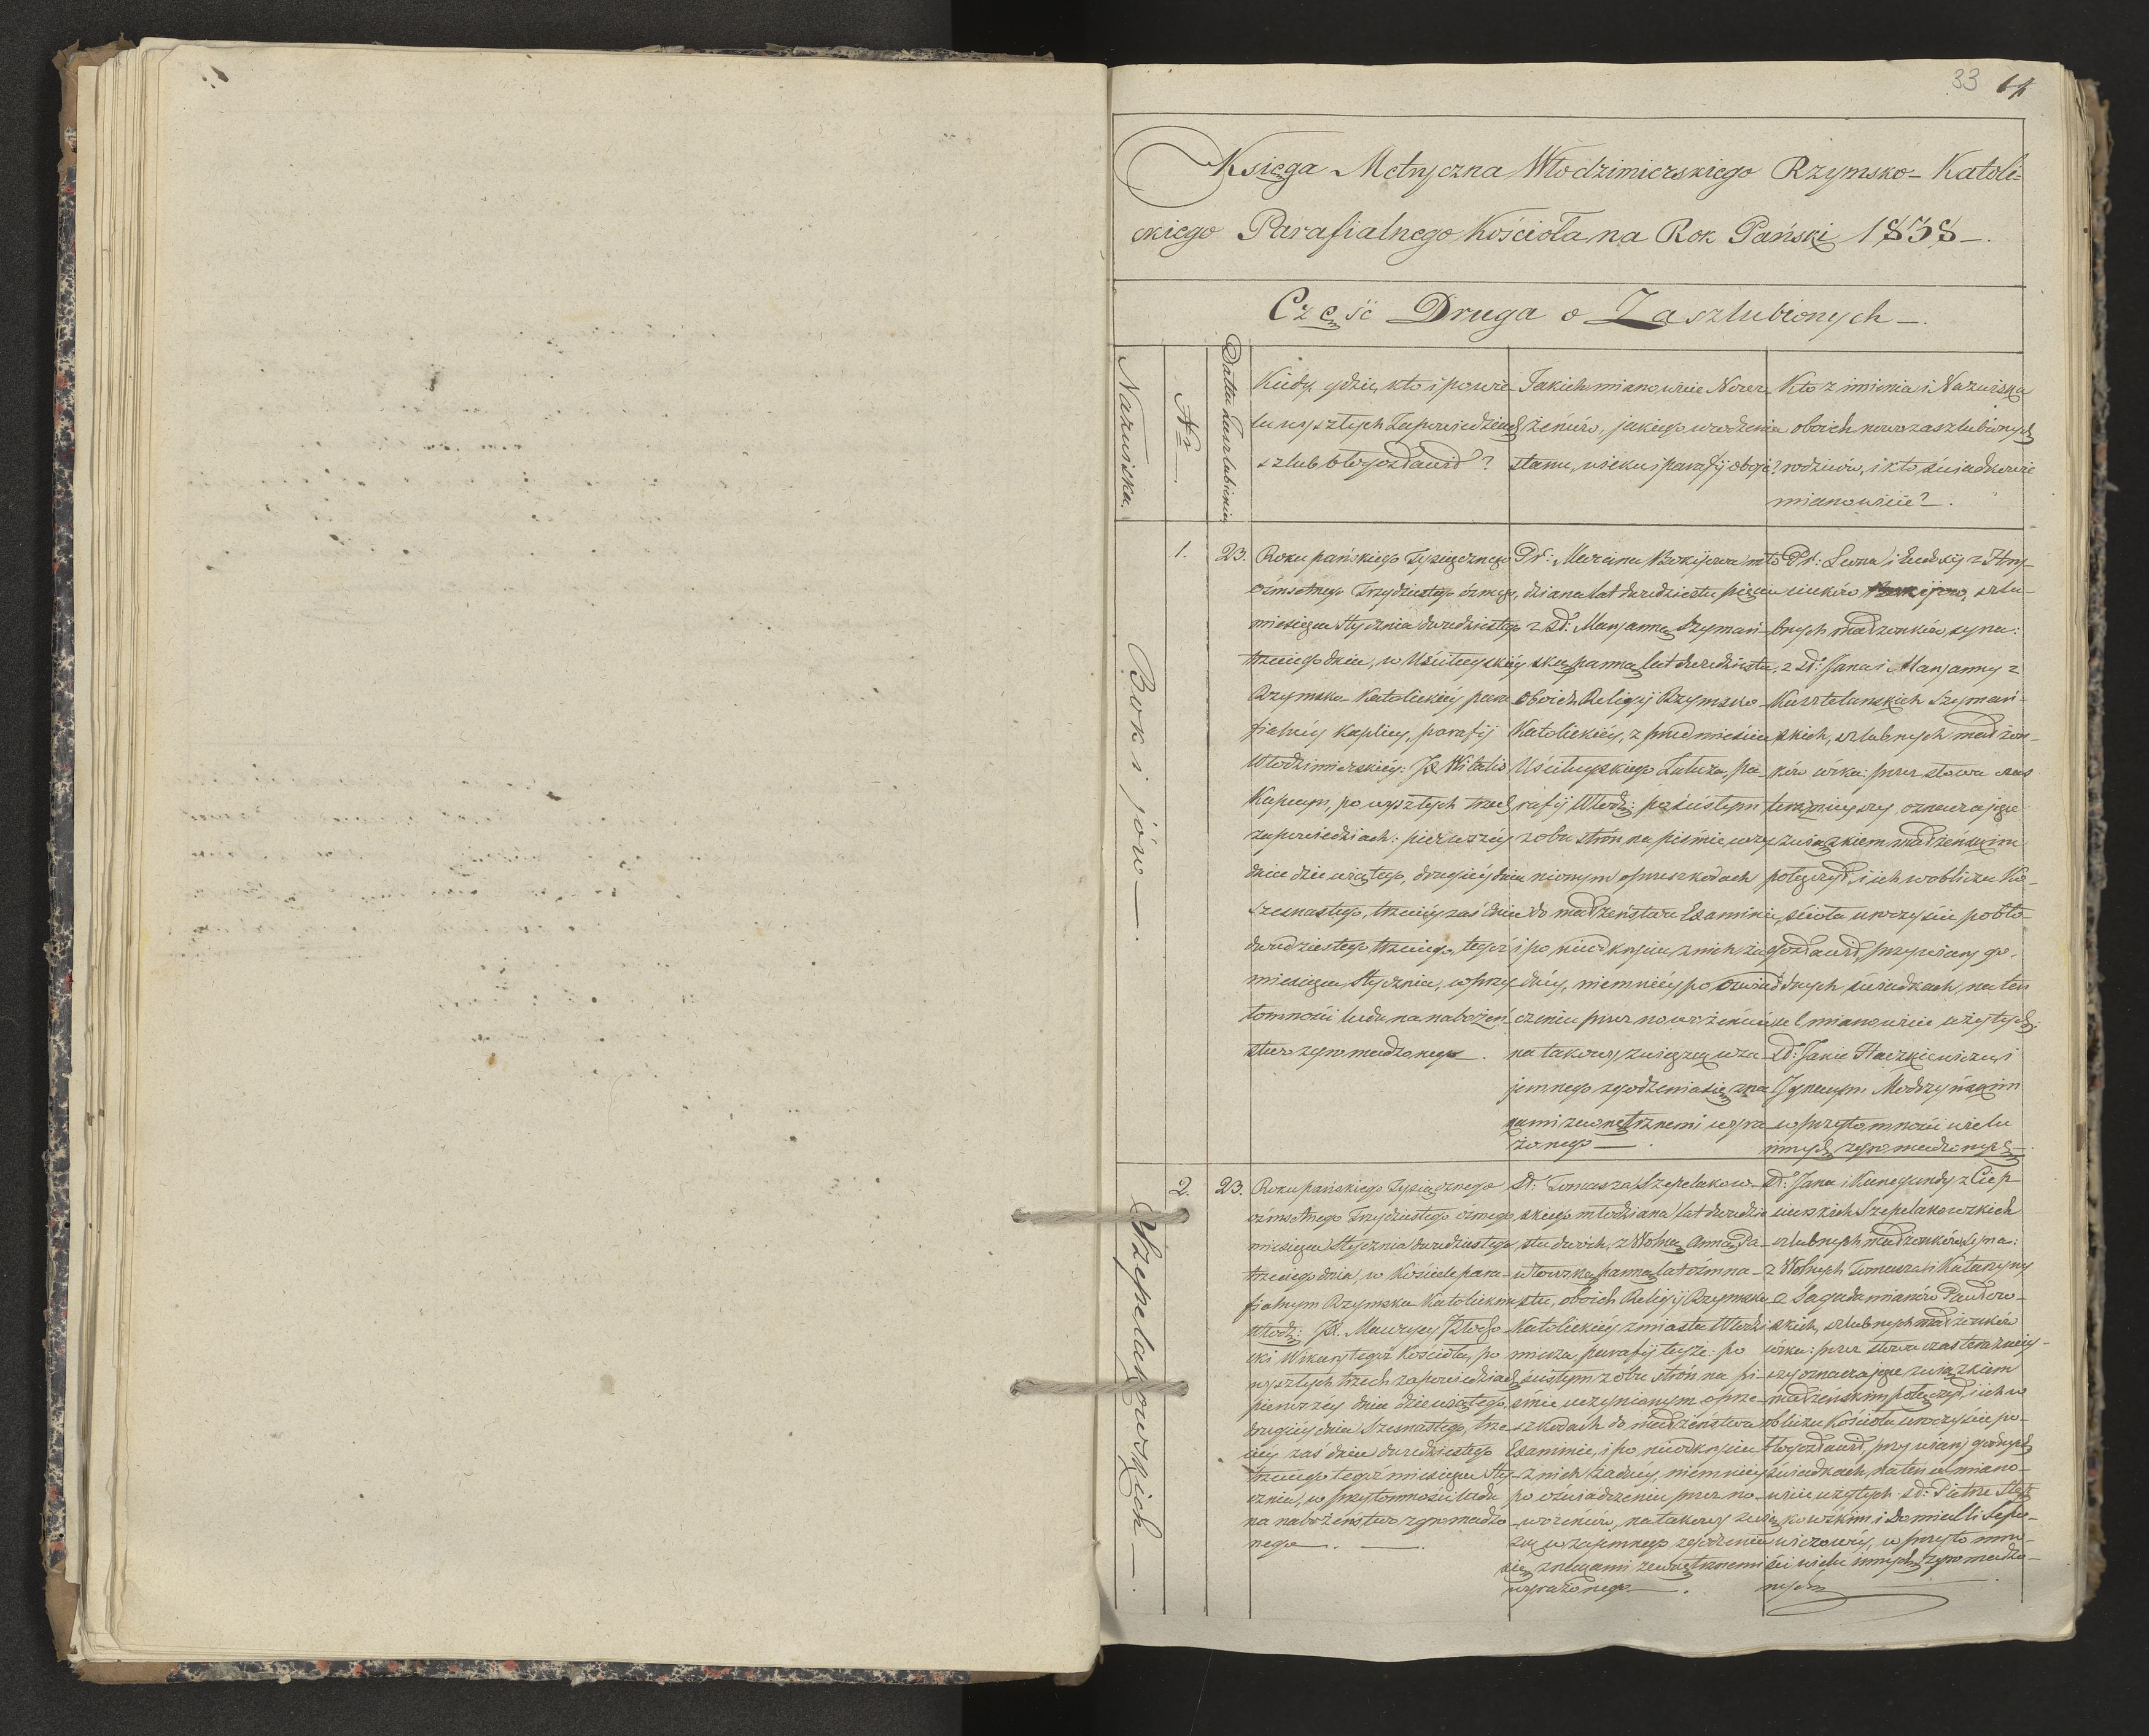 33 64
Księga Metryczna Włodzimierskiego Rzymsko-Katoli-
ckiego Parafialnego Kościoła na Rok Pański 1838 —.
Część Druga o Zaszlubionych —.
Nazwiska.
Nr
Datta Zaszlubienia
Kiedy, gdzie, kto i po wie-
lu wyszłych Zapowiedziach
szlub błogosławił?
Jakich mianowicie Nowo-
żeńców, jakiego urodzenia
stanu, wieku i parafij oboje?
Kto z imienia i Nazwiska
oboich nowozaszlubionych
rodziców, i kto świadkowie
mianowicie? —.
Bokijów —.
1.
23.
Roku pańskiego Tysiącznego
ośmsetnego Trzydziestego ósmego,
miesiąca Stycznia dwudziestego
trzeciego dnia, w Uściługskiéy
Rzymsko-Katolickiéy para-
fialnéy kaplicy, parafij
Włodzimierskiéy: JX Witalis
po wyszłych trzech
zapowiedziach: pierwszéy
dnia dziewiątego, drugiéy dnia
szesnastego, trzeciéy zaś dnia
dwudziestego trzeciego, tegoż
miesiąca Stycznia, w przy-
tomności ludu na nabożeń-
stwo zgromadzonego —.
Marcina Bokijowa mło-
dziana lat dwudziestu pięciu
z Sł: Maryanną Szymań-
ską panną lat dwudziestu,
Oboich Religij Rzymsko-
Katolickiéy, z przedmieścia
Uściługskiego pa-
rafij Włodz:
z obu strón na piśmie uczy-
nionym o przeszkodach
do małżeństwa Examinie,
i po nieodkryciu z nich ża-
dnéy, niemniéy po oświad-
czeniu przez nowożeńców
na takowy związek wza-
jemnego zgodzenia się zna-
kami zewnętrznemi wyra-
żonego —.
Leona i Ewdosij z Hry-
szlu-
bnych małżonków, syna:
z Sł: Jana i Maryanny z
Kasztelanskich Szymań-
skich, szlubnych małżon-
ków córka: przez słowa czas
teraznieyszy oznaczające
związkiem małżeńskim
połączył, i ich w obliczu Ko-
ścioła uroczyście pobło-
gosławił, przy wiary go-
dnych świadkach, na ten
cel mianowicie użytych:
Sł: Janie Haczkiewiczu, i
Ignacym Modzyńskim
w przytomności wielu
innych zgromadzonych —.
Szepelakowskich —.
2.
23.
Roku pańskiego Tysiącznego
ośmsetnego Trzydziestego ósmego
miesiąca Stycznia dwudziestego
trzeciego dnia, w Kościele para-
fialnym Rzymsko-Katolickim
Włodz: JX. Maurycy
Wikary tegoż Kościoła, po
wyszłych trzech zapowiedziach
pierwszey dnia dziewiątego
drugiéy dnia Szesnastego, trze-
ciey zaś dnia dwudziestego
trzeciego tegoż miesiąca Sty-
cznia, w przytomności ludu
na nabożeństwo zgromadzo-
nego —.
Sł: Tomasza Szepelakow-
skiego młodziana lat dwudzie-
stu dwóch, z Wolną Anną Pa-
włowską panną lat ośmna-
stu, oboich Religij Rzymsko
Katolickiéy z miasta Włodzi-
mierza parafij teyże: po
ścisłym z obu strón na pi-
śmie uczynionym o prze-
szkodach do małżeństwa
Examinie, i po nieodkryciu
z nich żadnéy, niemniéy
po oświadczeniu przez no-
wożeńców, na takowy zwią-
zek wzajemnego zgodzenia
się znakami zewnętrznemi
wyrażonego —.
Sł: Jana i Kunegundy z Ciep-
Szepelakowskich
szlubnych małżonków, syna:
z Wolnych Tomasza i Katarzyny
z Pawłow-
skich, szlubnych małżonków
córka: przez słowa czas terazniey-
szy oznaczające związkiem
małżeńskim połączył, i ich w
obliczu Kościoła uroczyście po-
błogosławił, przy wiary godnych
świadkach, na ten cel miano-
wicie użytych: Sł: Piotrze
i
w przytomno-
ści wielu innych zgromadzo-
nych